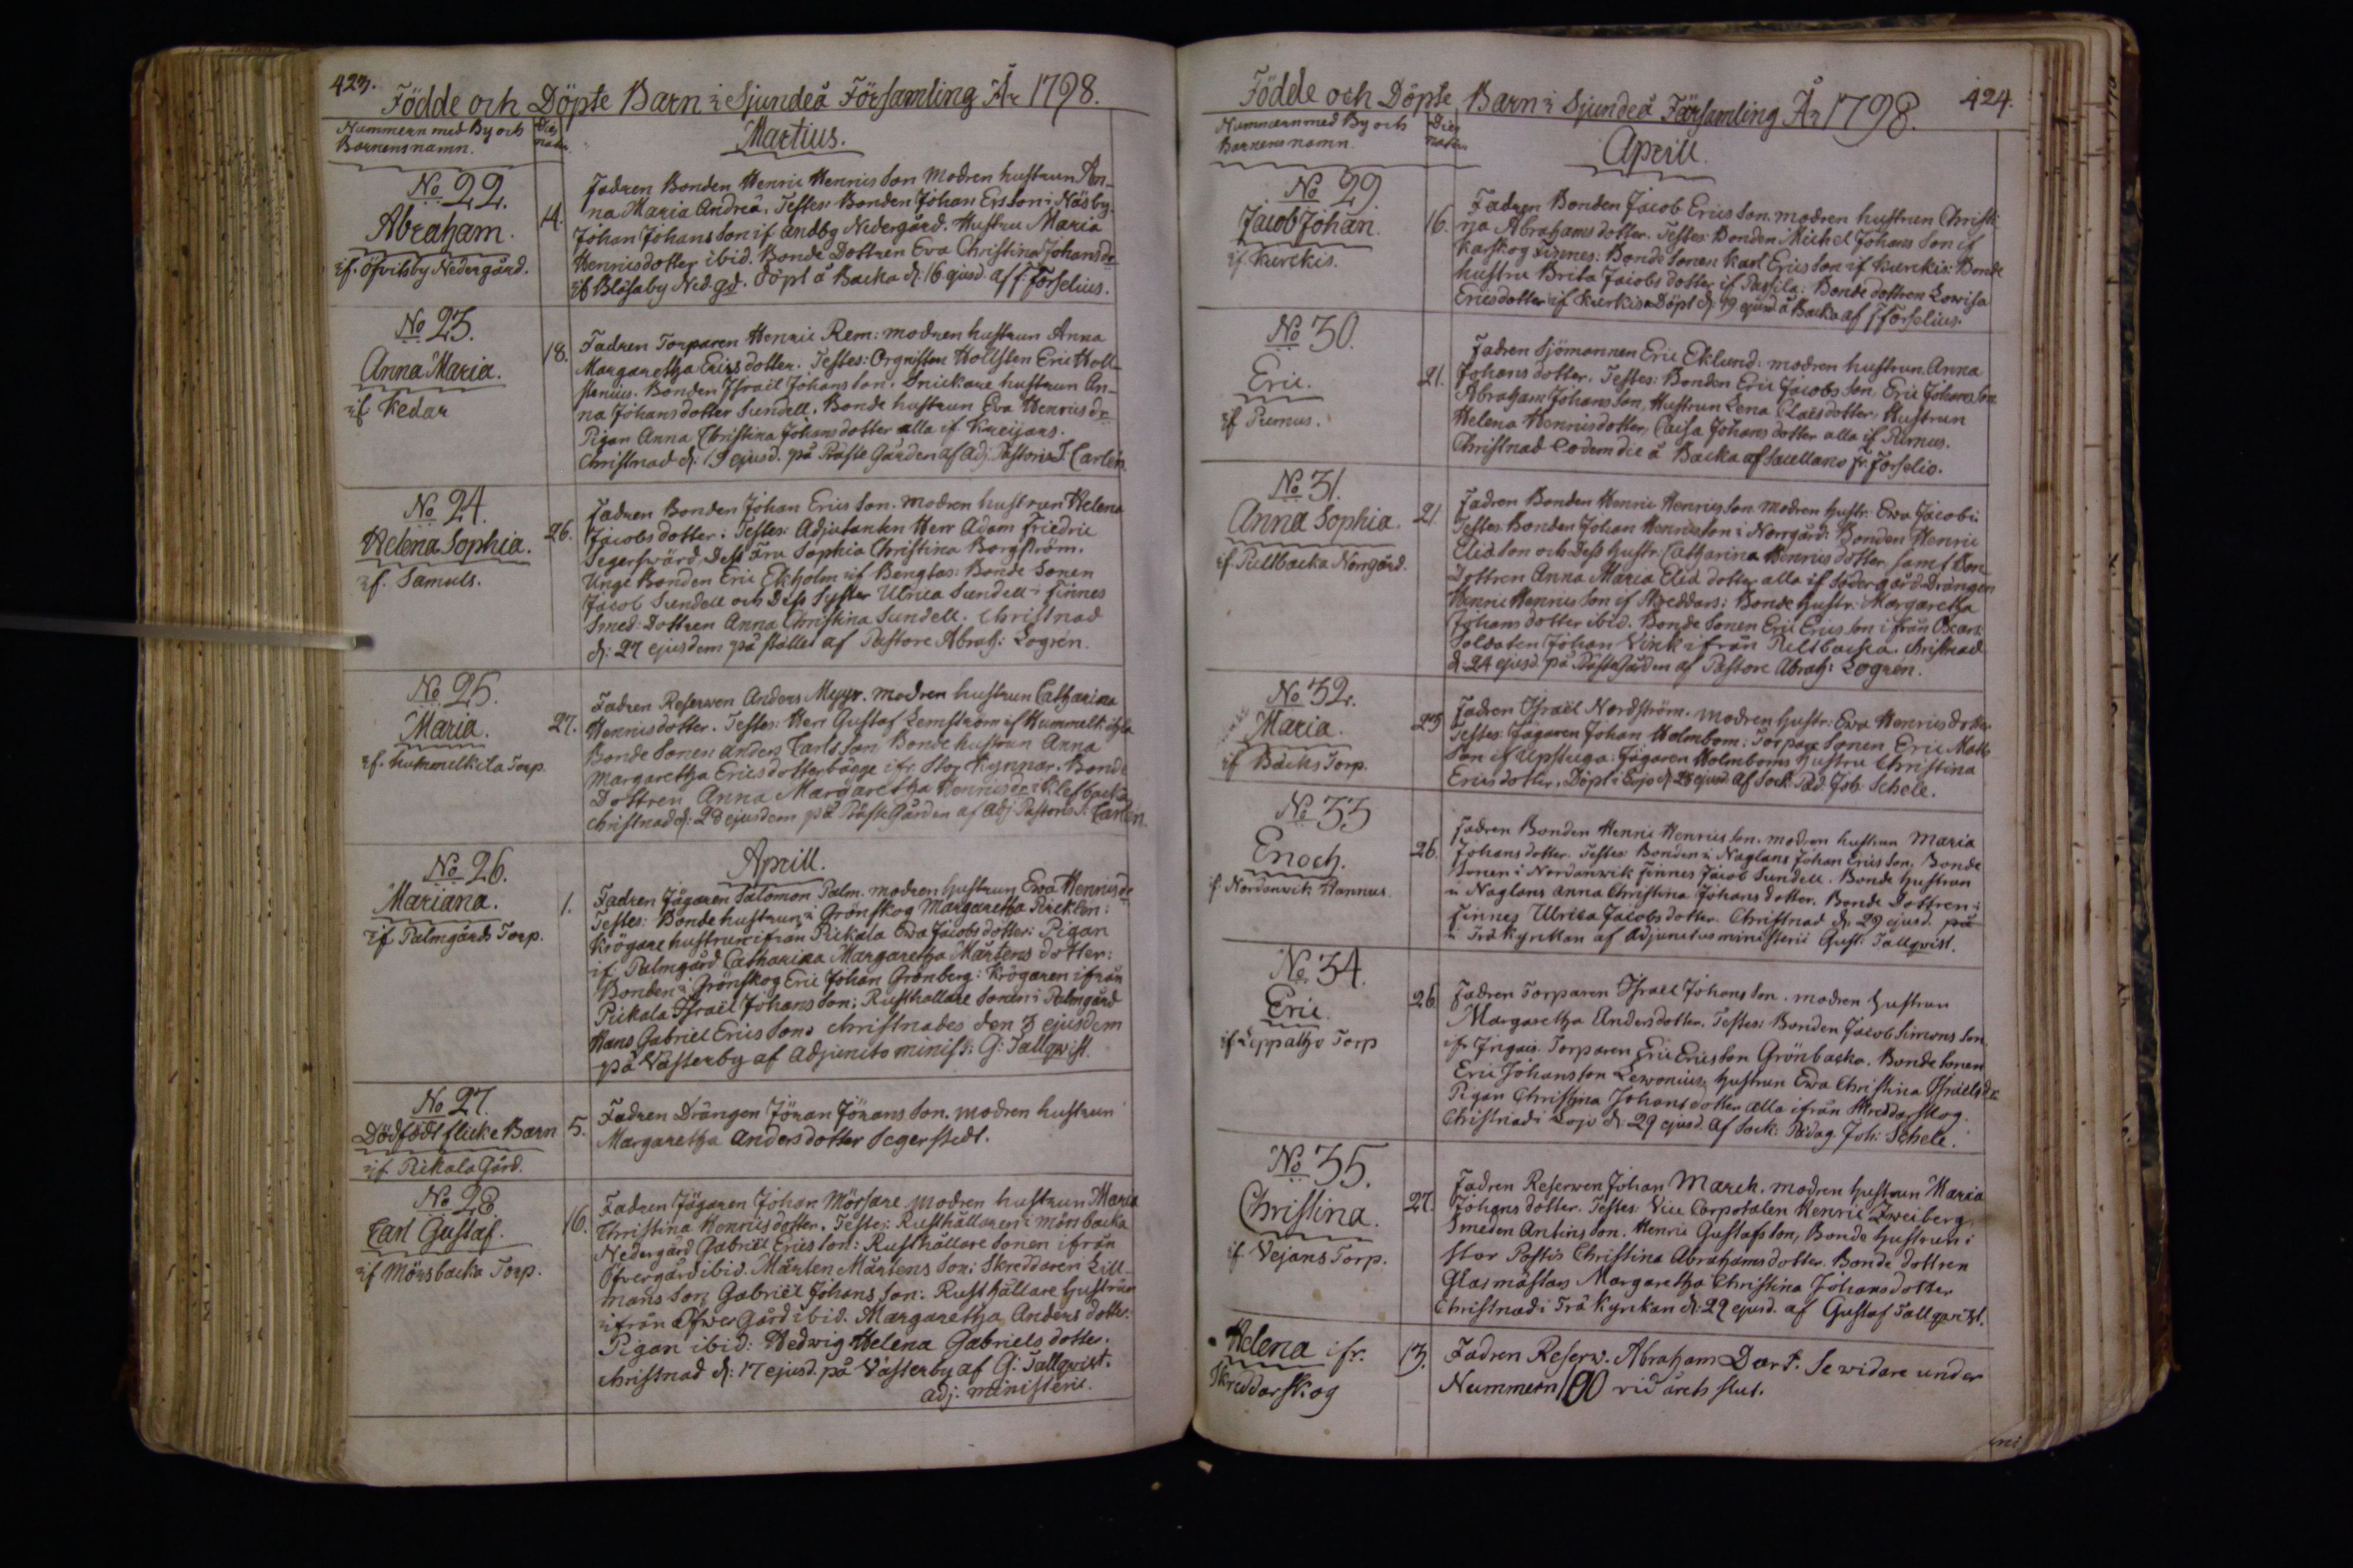 423.
Födde och Döpte Barn i Sjundeå Församling År 1798.
Nummern med By och
Barnens namn.
Dies
natu.
Martius.
No 22.
Abraham.
if. Öfvitsby Nedergård.
14.
Fadren Bonden Henric Henrics son Modren hustrun An-
na Maria Andreæ. Testes: Bonden Johan Ersson i Näsby.
Johan Johansson if Nedergård. Hustru Maria
Henricsdotter ibid. Bonde Dottren Eva Christina Johansdr
if Blåsaby Ned. gd. Döpt å Backa d. 16 ejusd. af F. Forselius.
No 23.
Anna Maria.
if Kedar
18.
Fadren Torparen Henric Rem: modren hustrun Anna
Margaretha Ericsdotter. Testes: Orgnisten Hollsten Eric Holl-
stenius. Bonden Israël Johansson. Snickare hustrun An-
na Johansdotter Sundell. Bonde hustrun Eva Henricsdr
Pigan Anna Christina Johansdotter alla if Kreijars.
Christnad d. 19 ejusd. på Präste Gården af Adj. Pastoris I. Carlén.
No 24.
Helena Sophia.
if. Samuls.
26.
Fadren Bonden Johan Ericsson. modren hustrun Helena
Jacobsdotter: Testes: Adjutanten Herr Adam Friedric
Segersvärd, Dess Fru Sophia Christina Borgström.
Unge Bonden Eric Ekholm if Bengtas: Bonde Sonen
Jacob Sundell och Dess Syster Ulrica Sundell i Finnes
Smed: Dottren Anna Christina Sundell. Christnad
d: 27 ejusdem på stället af Pastore Abrah: Logrén.
No 25.
Maria.
if. Hummelkila Torp.
27.
Fadren Reserven Anders Meyr. modren hustrun Catharina
Henricsdotter. Testes: Herr Gustaf Lemström if Hummelkihla
Bonde Sonen Anders Carlsson Bonde hustrun Anna
Margaretha Ericsdotter bägge ifr. Stor Kynnar. Bonde
Dottren Anna Margaretha Henricsdr i Klefbacka
Christnad d: 28 ejusdem på PrästeGården af Adj Pastoris I. Carlén.
Aprill.
No 26.
Mariana.
if Palmgårds Torp.
1.
Fadren Jägaren Salomon Palm. modren hustrun Ewa Henricsdr
Testes: Bonde hustrun i Grönskog Margaretha Pircklen:
Krögare hustrun ifrån Pickala Ewa Jacobsdotter: Pigan
if Palmgård Catharina Margaretha Mårtens dotter:
Bonden i Grönskog Eric Johan Grönberg: Krögaren ifrån
Pickala Israël Johansson: Rusthållare Sonen i Palmgård
Hans Gabriel Ericsson. Christnades den 3 ejusdem
på Västerby af Adjuncto minist: G: Tallqwist.
No 27.
Dödfödt flicke Barn
if Pickala Gård.
5.
Fadren Drängen Jöran Jöransson. modren hustrun
Margaretha Andersdotter Segerstedt.
No 28.
Carl Gustaf.
if Mörsbacka Torp.
16.
Fadren Jägaren Johan Mörsare modren hustrun Maria
Christina Henricsdotter. Testes: Rusthållaren i Mörsbacka
Nedergård Gabriel Ericsson: Rusthållare Sonen ifrån
Öfvergård ibid. Mårten Mårtens son: Skreddaren Lill-
mans son Gabriël Johans son: Rusthållare hustrun
ifrån Öfwer Gård ibid. Margaretha Anders dotter.
Pigan ibid: Hedwig Helena Gabriels dotter.
Christnad d: 17 ejusd. på Västerby af G: Tallqwist.
Adj: ministerii.
Födde och Döpte Barn i Sjundeå Församling År 1798.
424.
Nummern med By och
Barnens namn.
Dies
natu.
Aprill.
No 29.
Jacob Johan.
if Kurckis.
16.
Fadren Bonden Jacob Ericsson. modren hustrun Christi
na Abrahamsdotter. Testes: Bonden Michel Johansson if
Karskog Finnes: Bonde Sonen Karl Ericsson if Kurckis: Bonde
hustru Brita Jacobsdotter if Passila: Bonde dottren Lowisa
Ericsdotter if Kurkis. Döpt d. 19 ejusd. å Backa af F Forselius.
No 30.
Eric.
if Purnus.
21.
Fadren Sjömannen Eric Eklund: modren hustrun Anna
Johans dotter. Testes: Bonden Eric Jacobsson, Eric Johansson
Abraham Johansson, Hustrun Lena Claësdotter, Hustrun
Helena Henricsdotter, Caisa Johans dotter alla if Purnus.
Christnad eodem die å Backa af Sacellano Fr. Forselio.
No 31.
Anna Sophia.
if. Pullbacka Norrgård.
21.
Fadren Bonden Henric Henricsson modren hustr: Ewa Jacobi:
Testes: Bonden Johan Henricsson i Norrgård: Bonden Henric
Eliæson och Dess Hustr: Catharina Henricsdotter, samt
Dottren Anna Maria Eliæ dotter alla if Södergård. Drängen
Henric Henricsson if Skreddars: Bonde hustr: Margaretha
Johansdotter ibid. Bonde Sonen Eric Ericsson ifrån
Soldaten Johan Vink ifrån Pullbacka. Christnad
d: 24 ejusd. på PrästeGården af Pastore Abrah: Logren.
No 32.
Maria.
if Bäcks Torp.
23
Fadren Israël Nordström. modren hustr: Ewa Henricsdotter
Testes: Jägaren Johan Holmbom: Torpare Sonen Eric Mats
son if Upstuga: Jägaren Holmboms Hustru Christina
Ericsdotter. Döpt i Lojo d 28 ejusd. af Sock: Pæd: Joh: Schele.
No 33
Enoch.
if. Nordanvik Hannus.
26.
Fadren Bonden Henric Henricsson. modren hustrun Maria
Johansdotter. Testes: Bonden i Naglans Johan Ericsson. Bonde
Sonen i Nordanwik Finnes Jacob Sundell. Bonde Hustrun
i Naglans Anna Christina Johans dotter. Bonde Dottren i
Finnes Ulrica Jacobs dotter. Christnad d. 29 ejusd. på
i Träkyrckan af Adjunctus ministerii Gust: Tallqwist.
No 34.
Eric.
if Leppatho Torp
26
Fadren Torparen Israel Johansson. modren hustrun
Margaretha Andersdotter. Testes: Bonden Jacob Simonsson
ifr Torparen Eric Ericsson Grönbacka. Bonde Sonen
Eric Johansson Lewonius, hustrun Ewa Christina Israelsdr
Pigan Christina Johans dotter alla ifrån Skreddarskog.
Christnad i Lojo d. 29 ejusd. af Sock: Pædag. Joh: Schele.
No 35.
Christina.
if. Vejans Torp.
27.
Fadren Reserven Johan March. modren hustrun Maria
Johans dotter. Testes: Vice Corporalen Henric Zweiberg,
Smeden Antinsson. Henric Gustafsson, Bonde hustrun i
Stor Postis Christina Abrahamsdotter. Bonde dottren
Glasmästars Margaretha Christina Johansdotter
Christnad i Trä Kyrckan d: 29 ejusd. af Gustaf Tallqwist.
Helena ifr.
Skreddarskog
13.
Fadren Reserv. Abraham Dart. Se widare under
Nummern 100 vid årets slut.